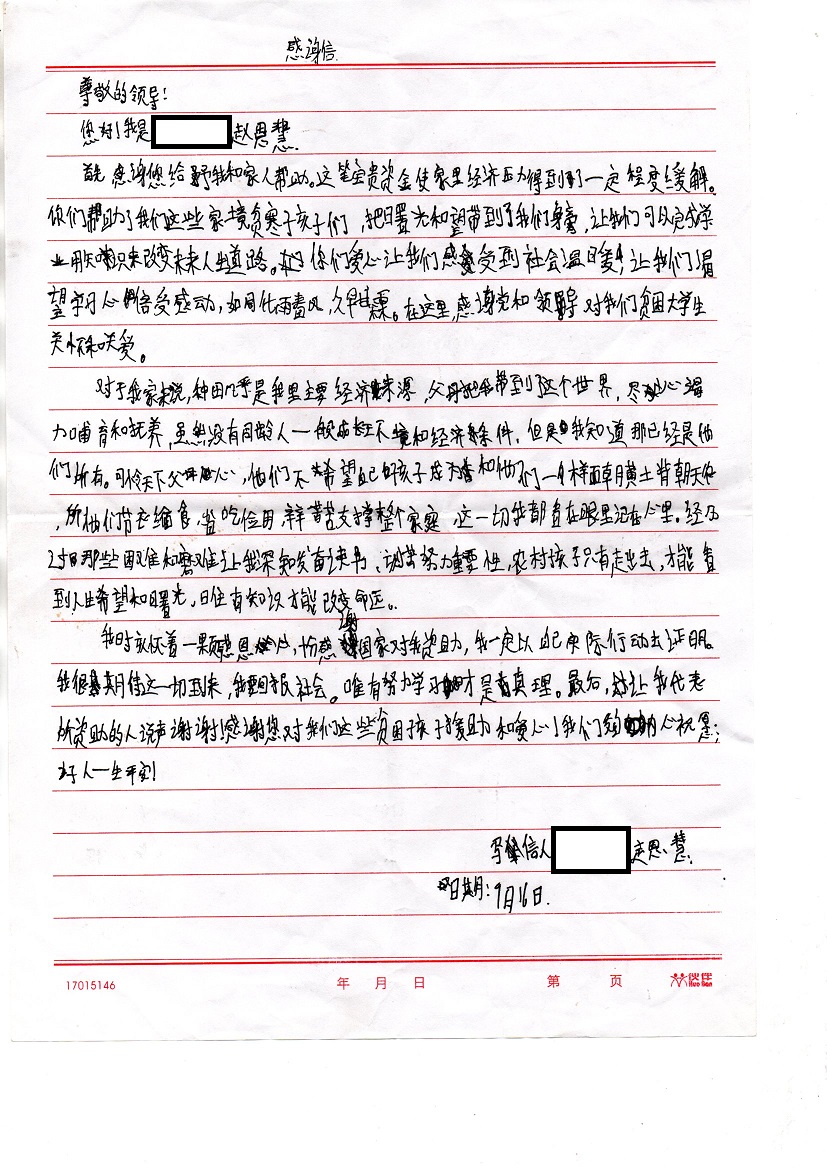 感谢信
尊敬的领导!
您好!我是 赵思慧.
首先感谢您给予我和家人帮助。这笔宝贵资金使家里经济压力得到了一定程度缓解。
你们帮助了我们这些家境贫寒子孩子们,把曙光和望带到了我们身旁,让我们可以完成学
业用知识来改变未来人生道路。你们爱心让我们感受到社会温暖,让我们渴
望学习心倍受感动,如同化雨春风,久旱甘露。在这里,感谢党和领导对我们贫困大学生
关怀和关爱。
对于我家来说,种田几乎是我里主要经济来源,父母把我带到了这个世界,尽心竭
力哺育和抚养,虽然没有同龄人一般成长环境和经济条件,但是我知道那已经是他
们所有。可怜天下父母心,他们不希望自己好孩子和他们一样面朝黄土背朝天
,所他们节衣缩食,省吃俭用,辛苦支撑整个家庭,这一切我都看在眼里记在心里。经历
那些困难和磨难让我深知发奋读书、努力重要性,农村孩子只有走出去,才能看
到人生希望和曙光,日住有知识才能改变命运。
我时刻怀着一颗感恩心,十分感谢国家对我资助,我一定以自己实际行动去证明。
我很期待这一切到来,我要回报社会。唯有努力学习才是真理。最后,请让我代表
所资助的人说声谢谢!感谢您对我们这些贫困孩子援助和爱心!我们衷心祝愿:
好人一生平安!
写信人 赵思慧.
日期:9月16日.
17015146 年 月 日 第 页 伙伴 Huo Ban